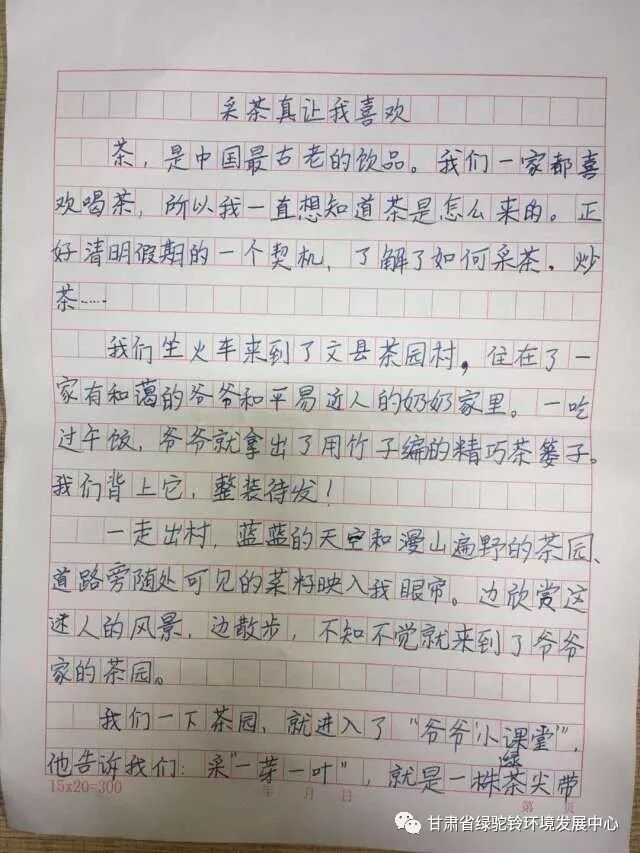 采茶真让我喜欢
茶，是中国最古老的饮品。我们一家都喜
欢喝茶，所以我一直想知道茶是怎么来的。正
好清明假期的一个契机，了解了如何采茶，炒
茶……
我们坐火车来到了文县茶园村，住在了一
家有和蔼的爷爷和平易近人的奶奶家里。一吃
过午饭，爷爷就拿出了用竹子编的精巧茶篓子。
我们背上它，整装待发！
一走出村，蓝蓝的天空和漫山遍野的茶园、
道路旁随处可见的菜籽映入我眼帘。边欣赏这
迷人的风景，边散步，不知不觉就来到了爷爷
家的茶园。
我们一下茶园，就进入了“爷爷小课堂”，
他告诉我们：采“一芽一叶”，就是一株茶尖带
绿
15×20=300 年 月 日 第 页
甘肃省绿驼铃环境发展中心